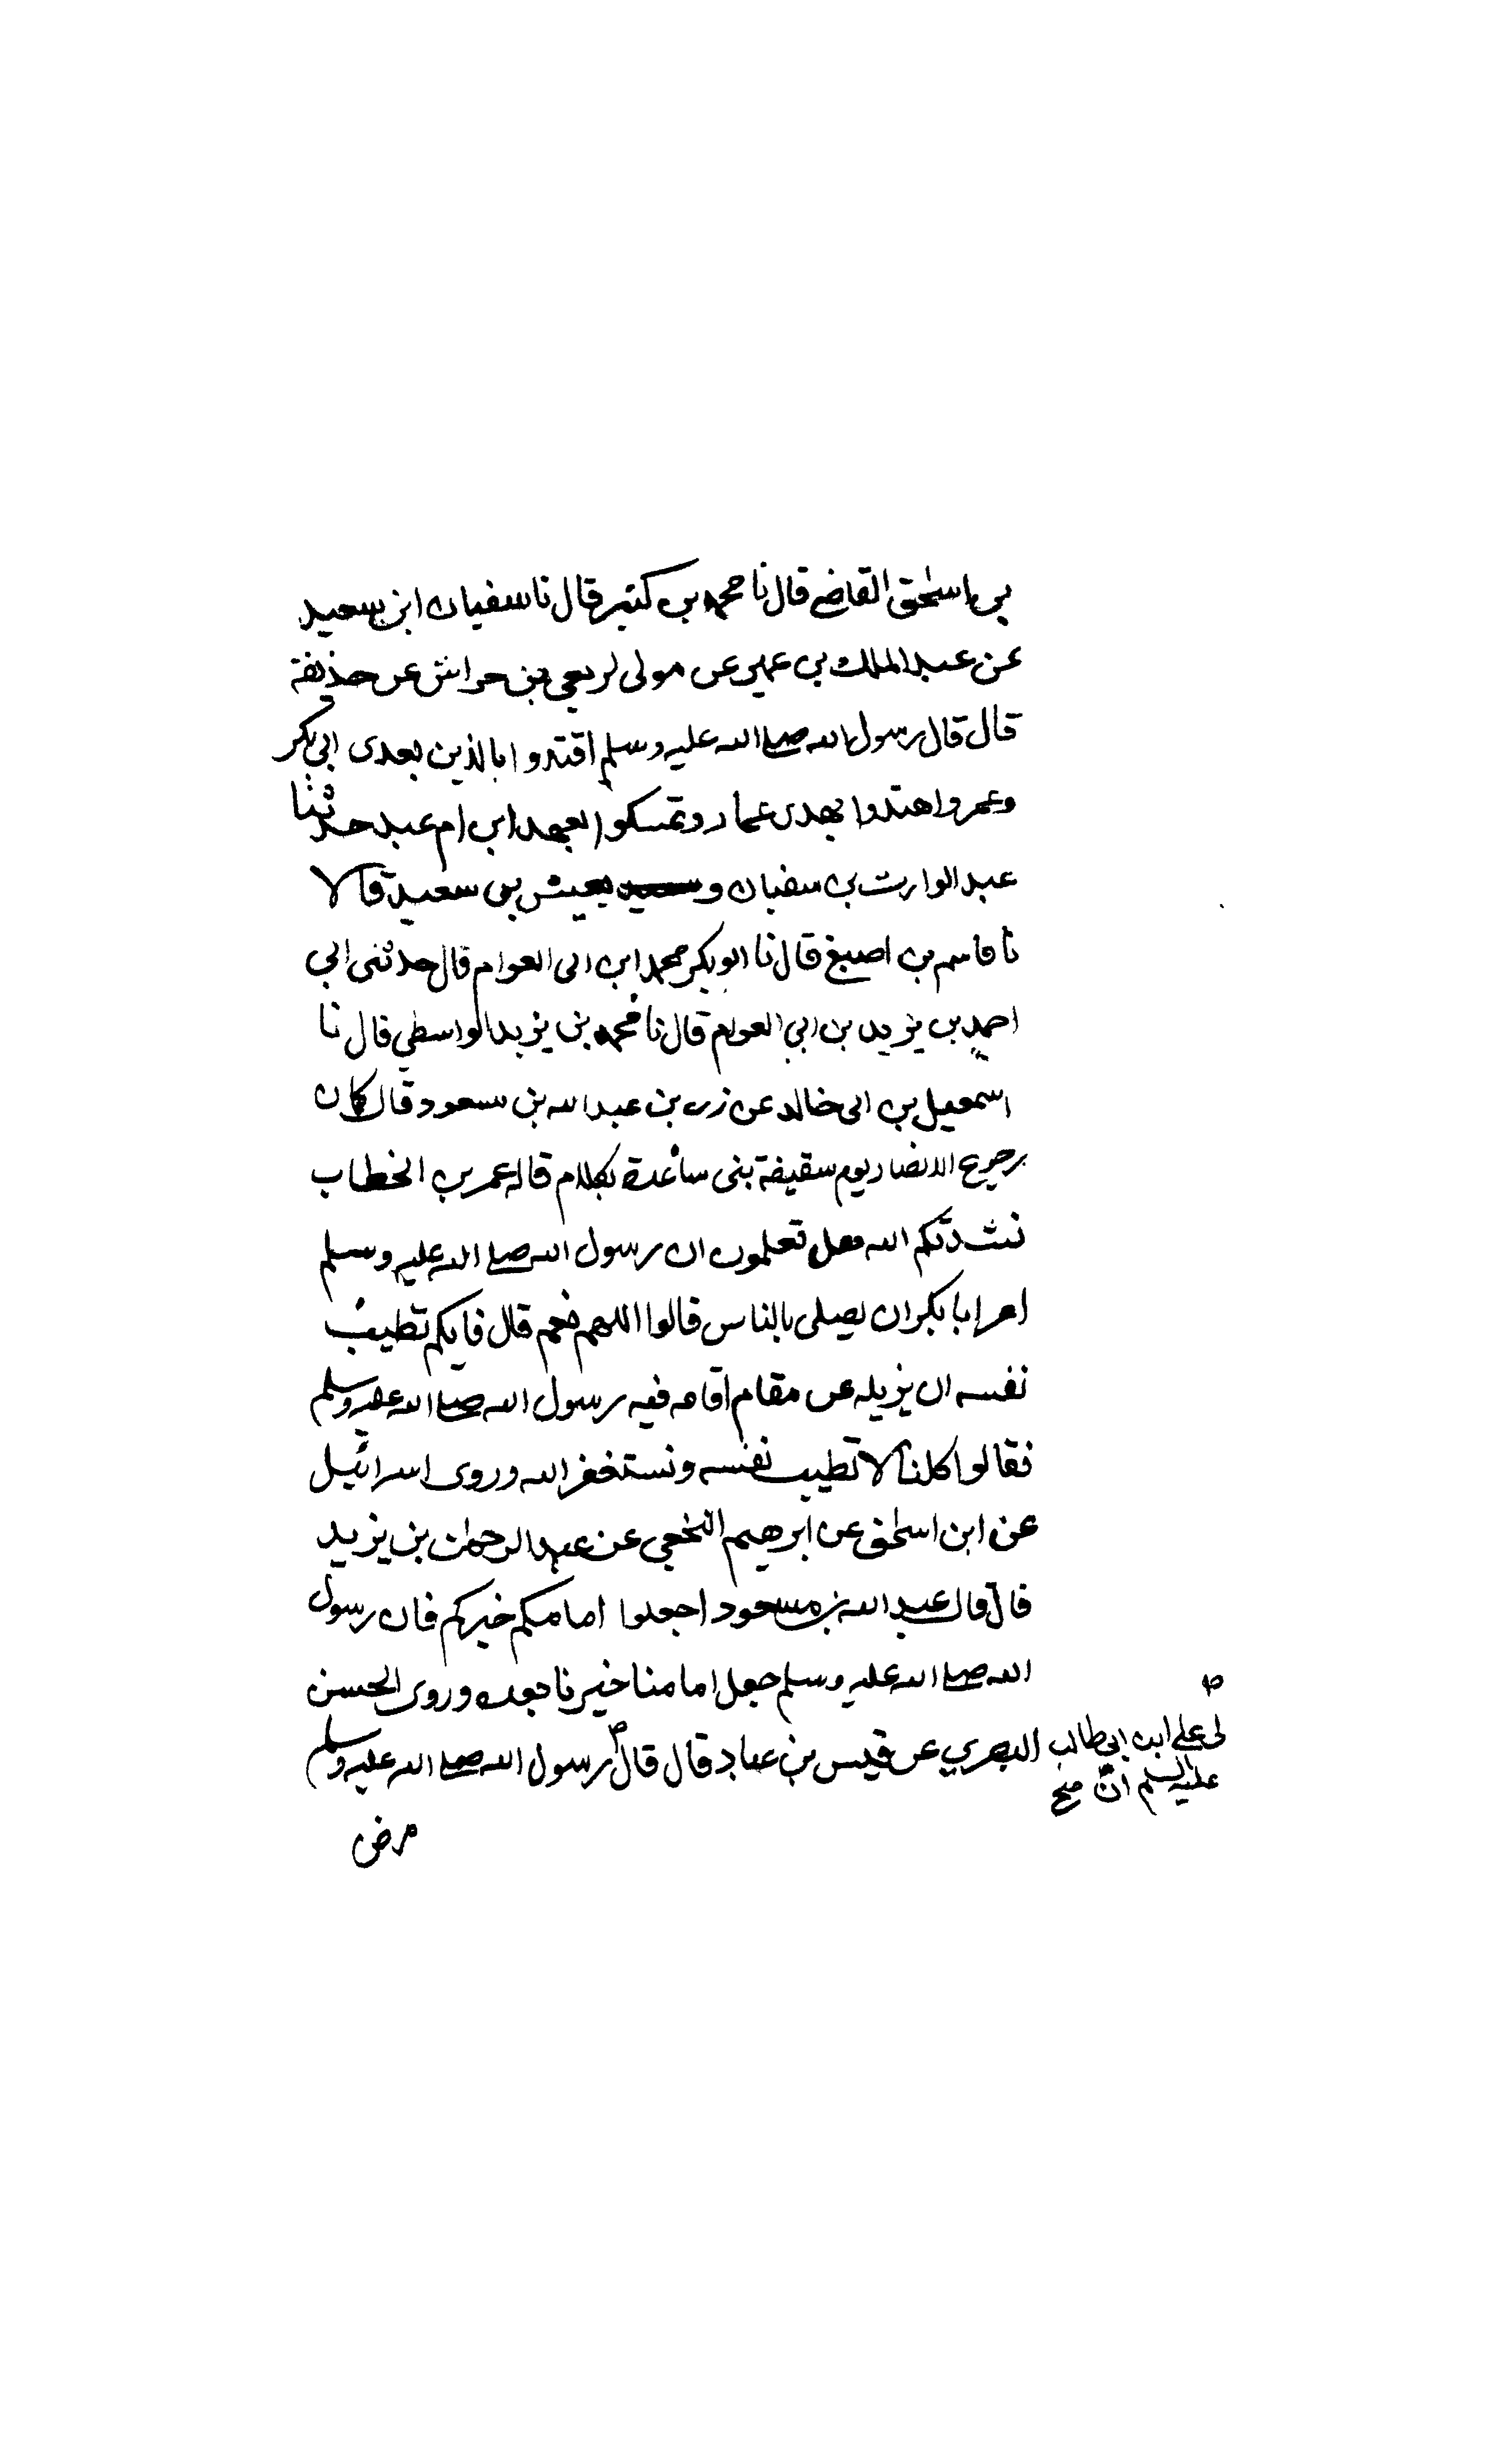 بن اسحق القاضي قال نا محمد بن كثير قال نا سفيان ابن سعيد
عن عبد الملك بن عمير عن مولى لربعي بن حراش عن حذيفة
قال قال رسول الله صلى الله عليه وسلم اقتدوا بالذين بعدى ابي بكر
وعمر واهتدوا بهدى عمار وتمسكوا بعهد ابن ام عبد حدثنا
عبد الوارث بن سفيان و يعيش بن سعيد قالا
نا قاسم بن اصبغ قال نا ابو بكر محمد ابن ابى العوام قال حدثنى ابي
احمد بن يزيد بن ابي العوام قال نا محمد بن يزيد الواسطي قال نا
اسمعيل بن ابى خالد عن زر بن عبد الله بن مسعود قال كان
رجوع الانصار يوم سقيفة بنى ساعدة بكلام قاله عمر بن الخطاب
نشدتكم الله هل تعلمون ان رسول الله صلى الله عليه وسلم
امر ابا بكر ان يصلى بالناس قالوا اللهم نعم قال فايكم تطيب
نفسه ان يزيله عن مقام اقامه فيه رسول الله صلى الله عليه وسلم
فقالوا كلنا لا تطيب نفسه ونستغفر الله وروى اسرائيل
عن ابن اسحق عن ابرهيم النخعي عن عبد الرحمن بن يزيد
قال قال عبد الله بن مسعود اجعلوا امامكم خيركم فان رسول
الله صلى الله عليه وسلم جعل امامنا خيرنا بعده وروى الحسن
البصري عن قيس بن عباد قال قال رسول الله صلى الله عليه وسلم
لى على ابن ابي طالب
عليه السلم ان صح
مرض